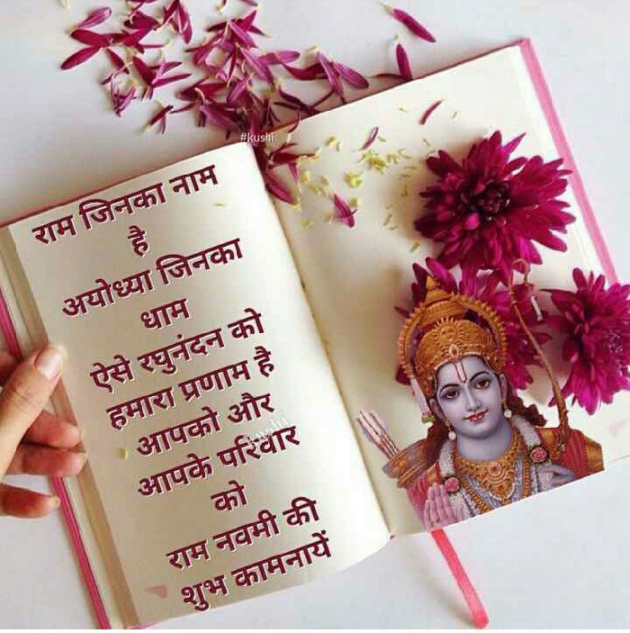 #kushi
राम जिनका नाम
है
अयोध्या जिनका
धाम
ऐसे रघुनंदन को
हमारा प्रणाम है
आपको और
आपके परिवार
को
राम नवमी की
शुभ कामनायें